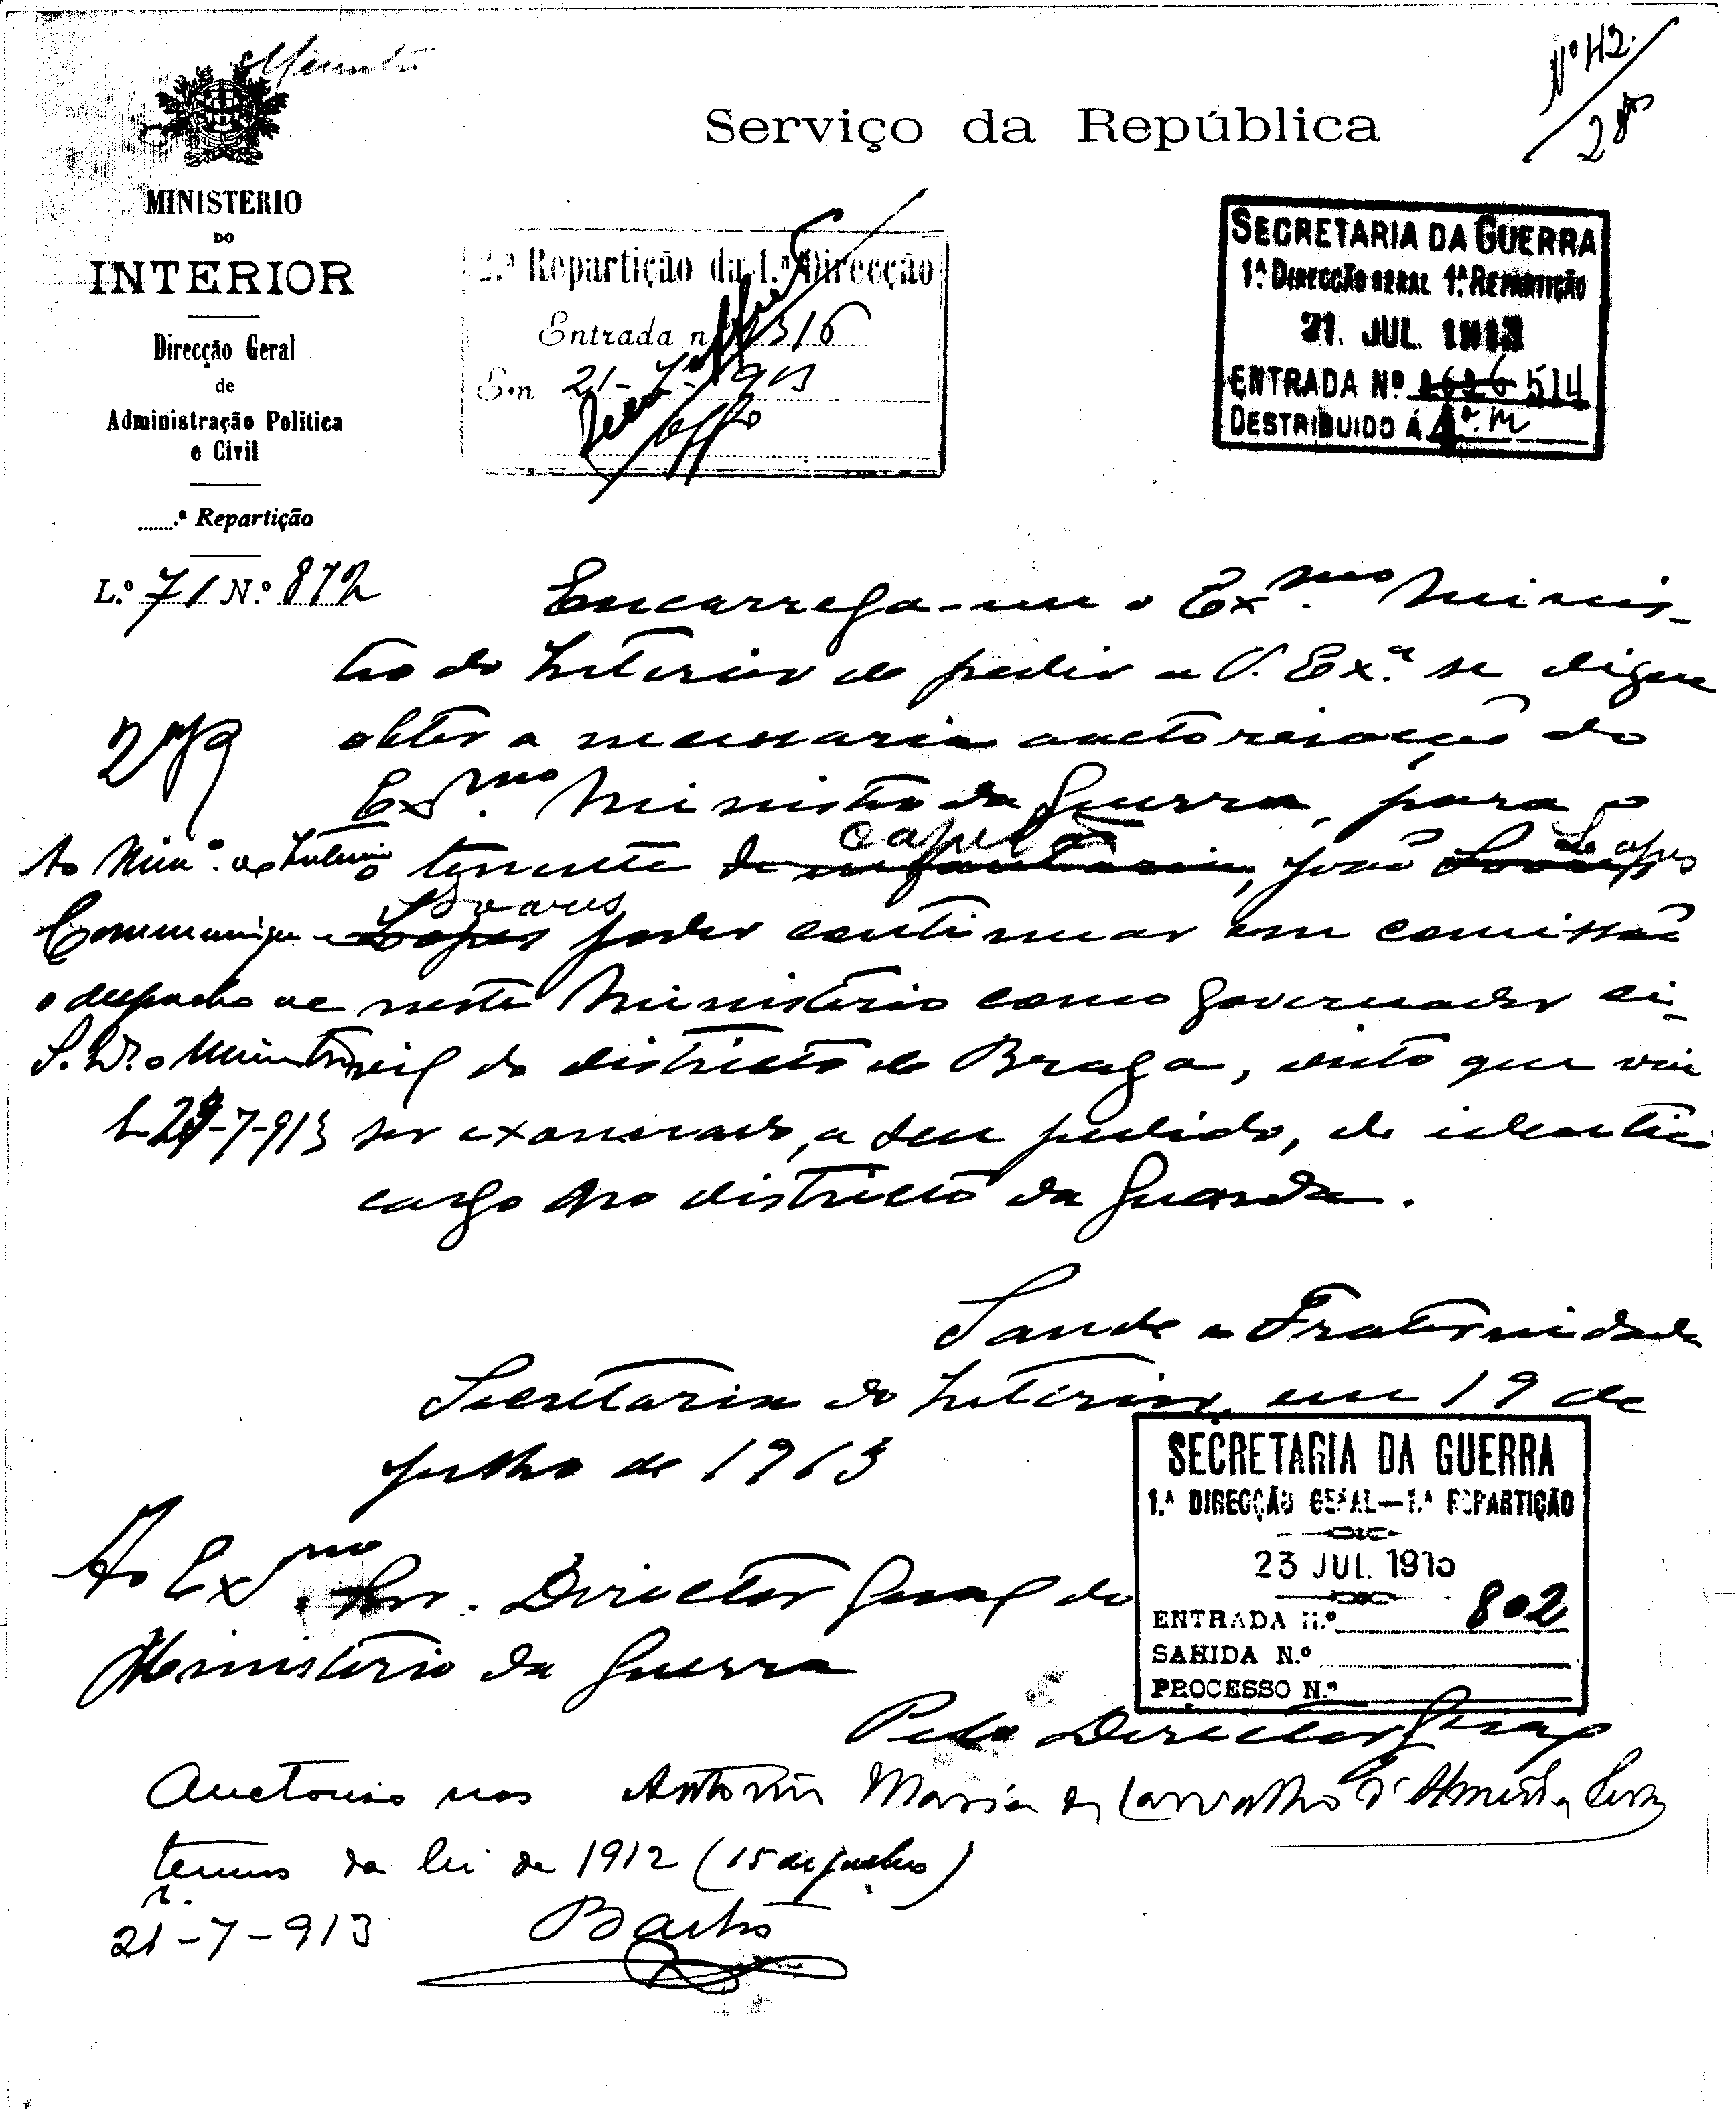 Minuta
Nº 42
28
Serviço da República
MINISTERIO
DO
INTERIOR
Direcção Geral
de
Administração Politica
e Civil
.......ª Repartição
L.º 71 N.º 872
2.ª Repartição da 1.ª Direcção
Entrada n 316
Em 21-7-913
SECRETARIA DA GUERRA
1ª DIRECÇÃO GERAL 1ª REPARTIÇÃO
21. JUL. 1913
ENTRADA Nº 2626 514
DESTRIBUIDO Á
Encarrega-me o Ex.mo Minis-
tro do Interior de pedir a V. Ex.ª se digne
obter a necessaria auctorisação do
Ex.mo Ministro da Guerra, para o
capelão Lopes
tenente de infantaria, João Soares
Soares
Lopes poder continuar em comissão
neste Ministerio como governador ci-
vil do districto de Braga, visto que vai
ser exonerado, a seu pedido, de identico
cargo no districto da Guarda.
Ao Min.º do Interior
Communique-se
o despacho de
S. Ex. o Ministro
-7-913
Saude e Fraternidade
Secretaria do Interior, em 19 de
julho de 1913
Ao Ex.mo Snr. Director Geral do
Ministerio da Guerra
SECRETARIA DA GUERRA
1.ª DIRECÇÃO GERAL—1.ª REPARTIÇÃO
23 JUL. 1913
ENTRADA N.º 802
SAHIDA N.º
PROCESSO N.º
Pelo Director Geral
Antonio Maria de Carvalho d'Almeida Serra
Auctoriso nos
termos da lei de 1912 (15 de julho)
21-7-913